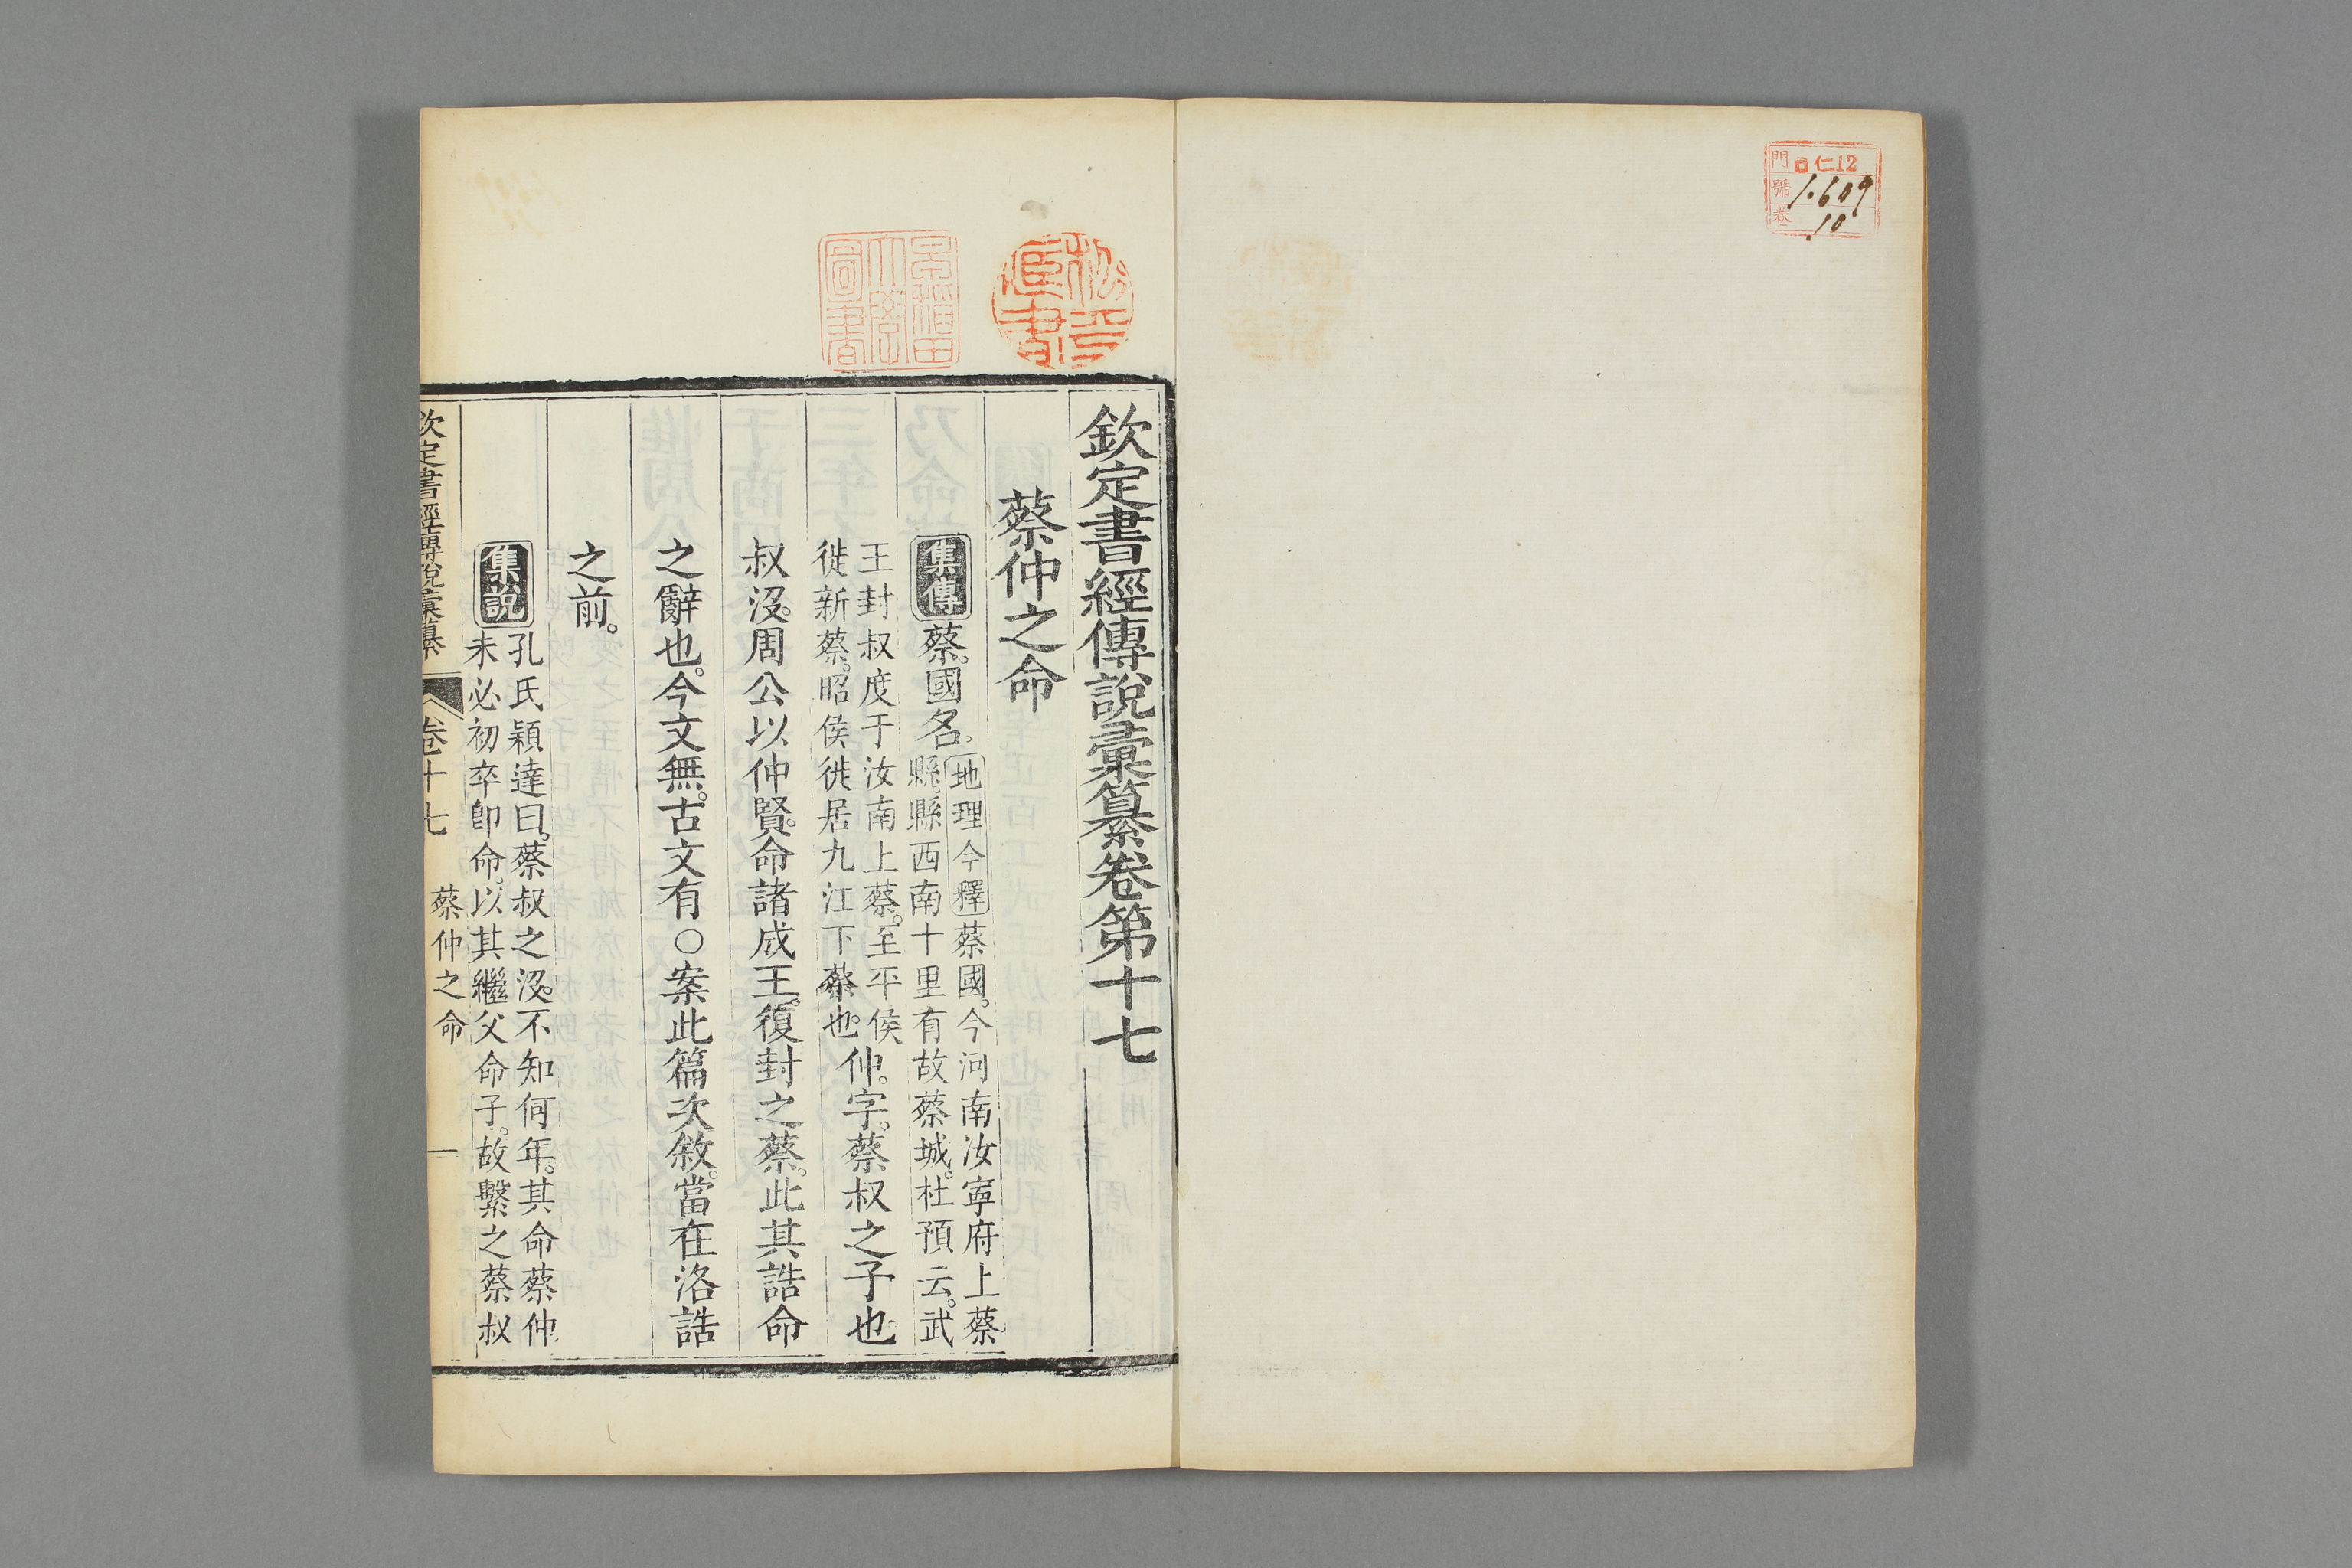 門 口仁12
號 1.609
卷 10
松平直書
早稲田大學圖書
欽定書經傳說彙纂卷第十七
蔡仲之命
集傳 蔡。國名。地理今釋 蔡國。今河南汝寧府上蔡
縣。縣西南十里有故蔡城。杜預云。武
王封叔度于汝南上蔡。至平侯
徙新蔡。昭侯徙居九江下蔡也。仲。字。蔡叔之子也。
叔沒。周公以仲賢。命諸成王。復封之蔡。此其誥命
之辭也。今文無。古文有○案此篇次敘。當在洛誥
之前。
集說 孔氏穎達曰。蔡叔之沒。不知何年。其命蔡仲。
未必初卒即命。以其繼父命子。故繫之蔡叔
欽定書經傳說彙纂 卷十七 蔡仲之命 一